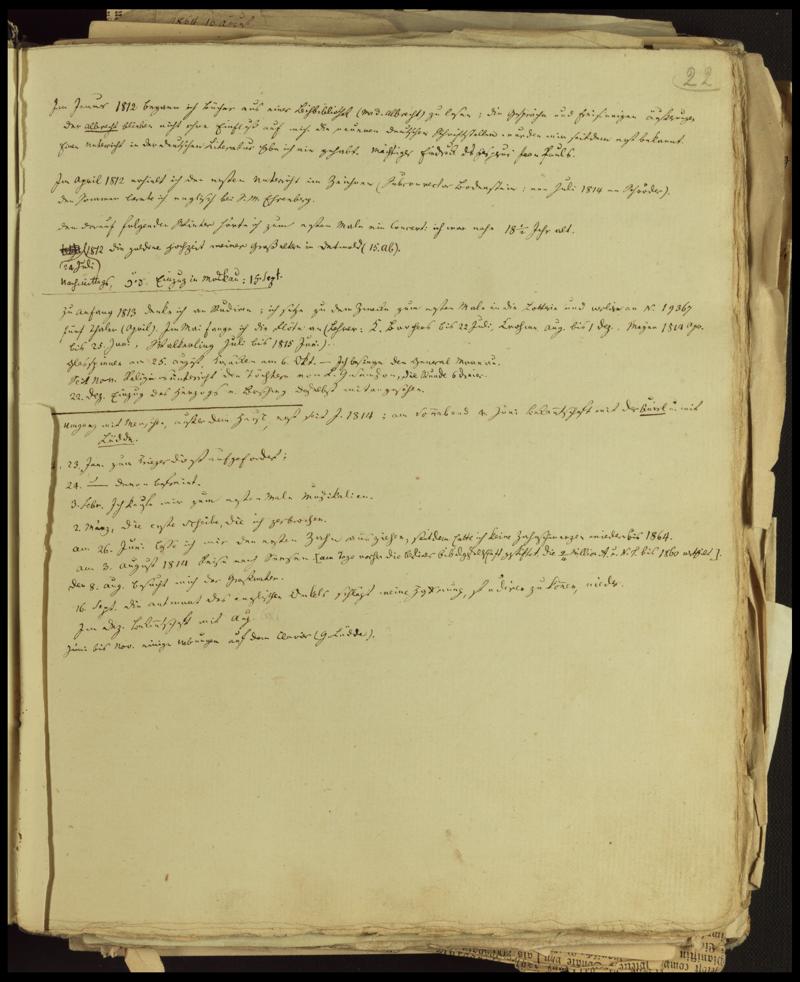 22
Im Januar 1812 begann ich Bücher aus einer Leihbibliothek (Mad. Albrecht) zu lesen; die Gespräche und freisinnigen Äußerungen
der Albrecht blieben nicht ohne Einfluß auf mich. Die neueren deutschen Schriftsteller wurden mir seitdem erst bekannt.
Einen Unterricht in der deutschen Literatur habe ich nie gehabt. Mächtiger Eindruck des Hesperus Jean Pauls.
Im April 1812 erhielt ich den ersten Unterricht im Zeichnen (Subconrector Bodenstein; von Juli 1814 an Schröder).
den Sommer lernte ich englisch bei S. M. Ehrenberg.
den darauf folgenden Winter hörte ich zum ersten Male ein Concert: ich war nahe 18½ Jahr alt.
1812 die goldene Hochzeit meiner Großeltern in Detmold (15. Ab).
(24 Juli)
Nachmittags, Einzug in Moskau: 15 Sept.
zu Anfang 1813 denke ich an Studiren; ich setze zu dem Zwecke zum ersten Male in die Lotterie und verliere an N. 19367
fünf Thaler (April). Im Mai fange ich die Flöte an (Lehrer: C. Borchers bis 22 Juli, Lehrman Aug. bis 1 Dez. Meyer 1814 Apr.
bis 25. Juni, Walterling Juli bis 1815 Juni.).
am 25. August am 6. Okt. — Ich besinge den General Moreau.
Seit Nov. Religionsunterricht den Töchtern von L. Samson, die Stunde 6 dreier.
22. Dez. Einzug des Herzogs v. Braschwg. daselbst mitangesehen.
Umgang mit Menschen, außer dem Hause, erst seit J. 1814; am Sonnabend 4 Juni Bekanntschaft mit der und mit
Lüdde.
23. Jan. zum Kriegesdienst aufgefordert;
24. — davon befreiet.
3. Febr. Ich kaufe mir zum ersten Male Musikalien.
2. März, die erste Scheibe, die ich zerbrochen.
am 26. Juni lasse ich mir den ersten Zahn ausziehen, seitdem hatte ich keine Zahnschmerzen wieder bis 1864.
am 3. August 1814 Reise nach Seesen [am Tage vorher die Bibelgesellschaft gestiftet, die 2 Million A. u. N. T. bis 1860 vertheilt].
den 8. Aug. besucht mich der Großvater.
16 Sept. die Antwort des englischen Onkels schlägt meine Hoffnung, studiren zu können, nieder.
Im Dez. Bekanntschaft mit Aug.
Juni bis Nov. einige Uebungen auf dem Clavier (G. Lüdde).